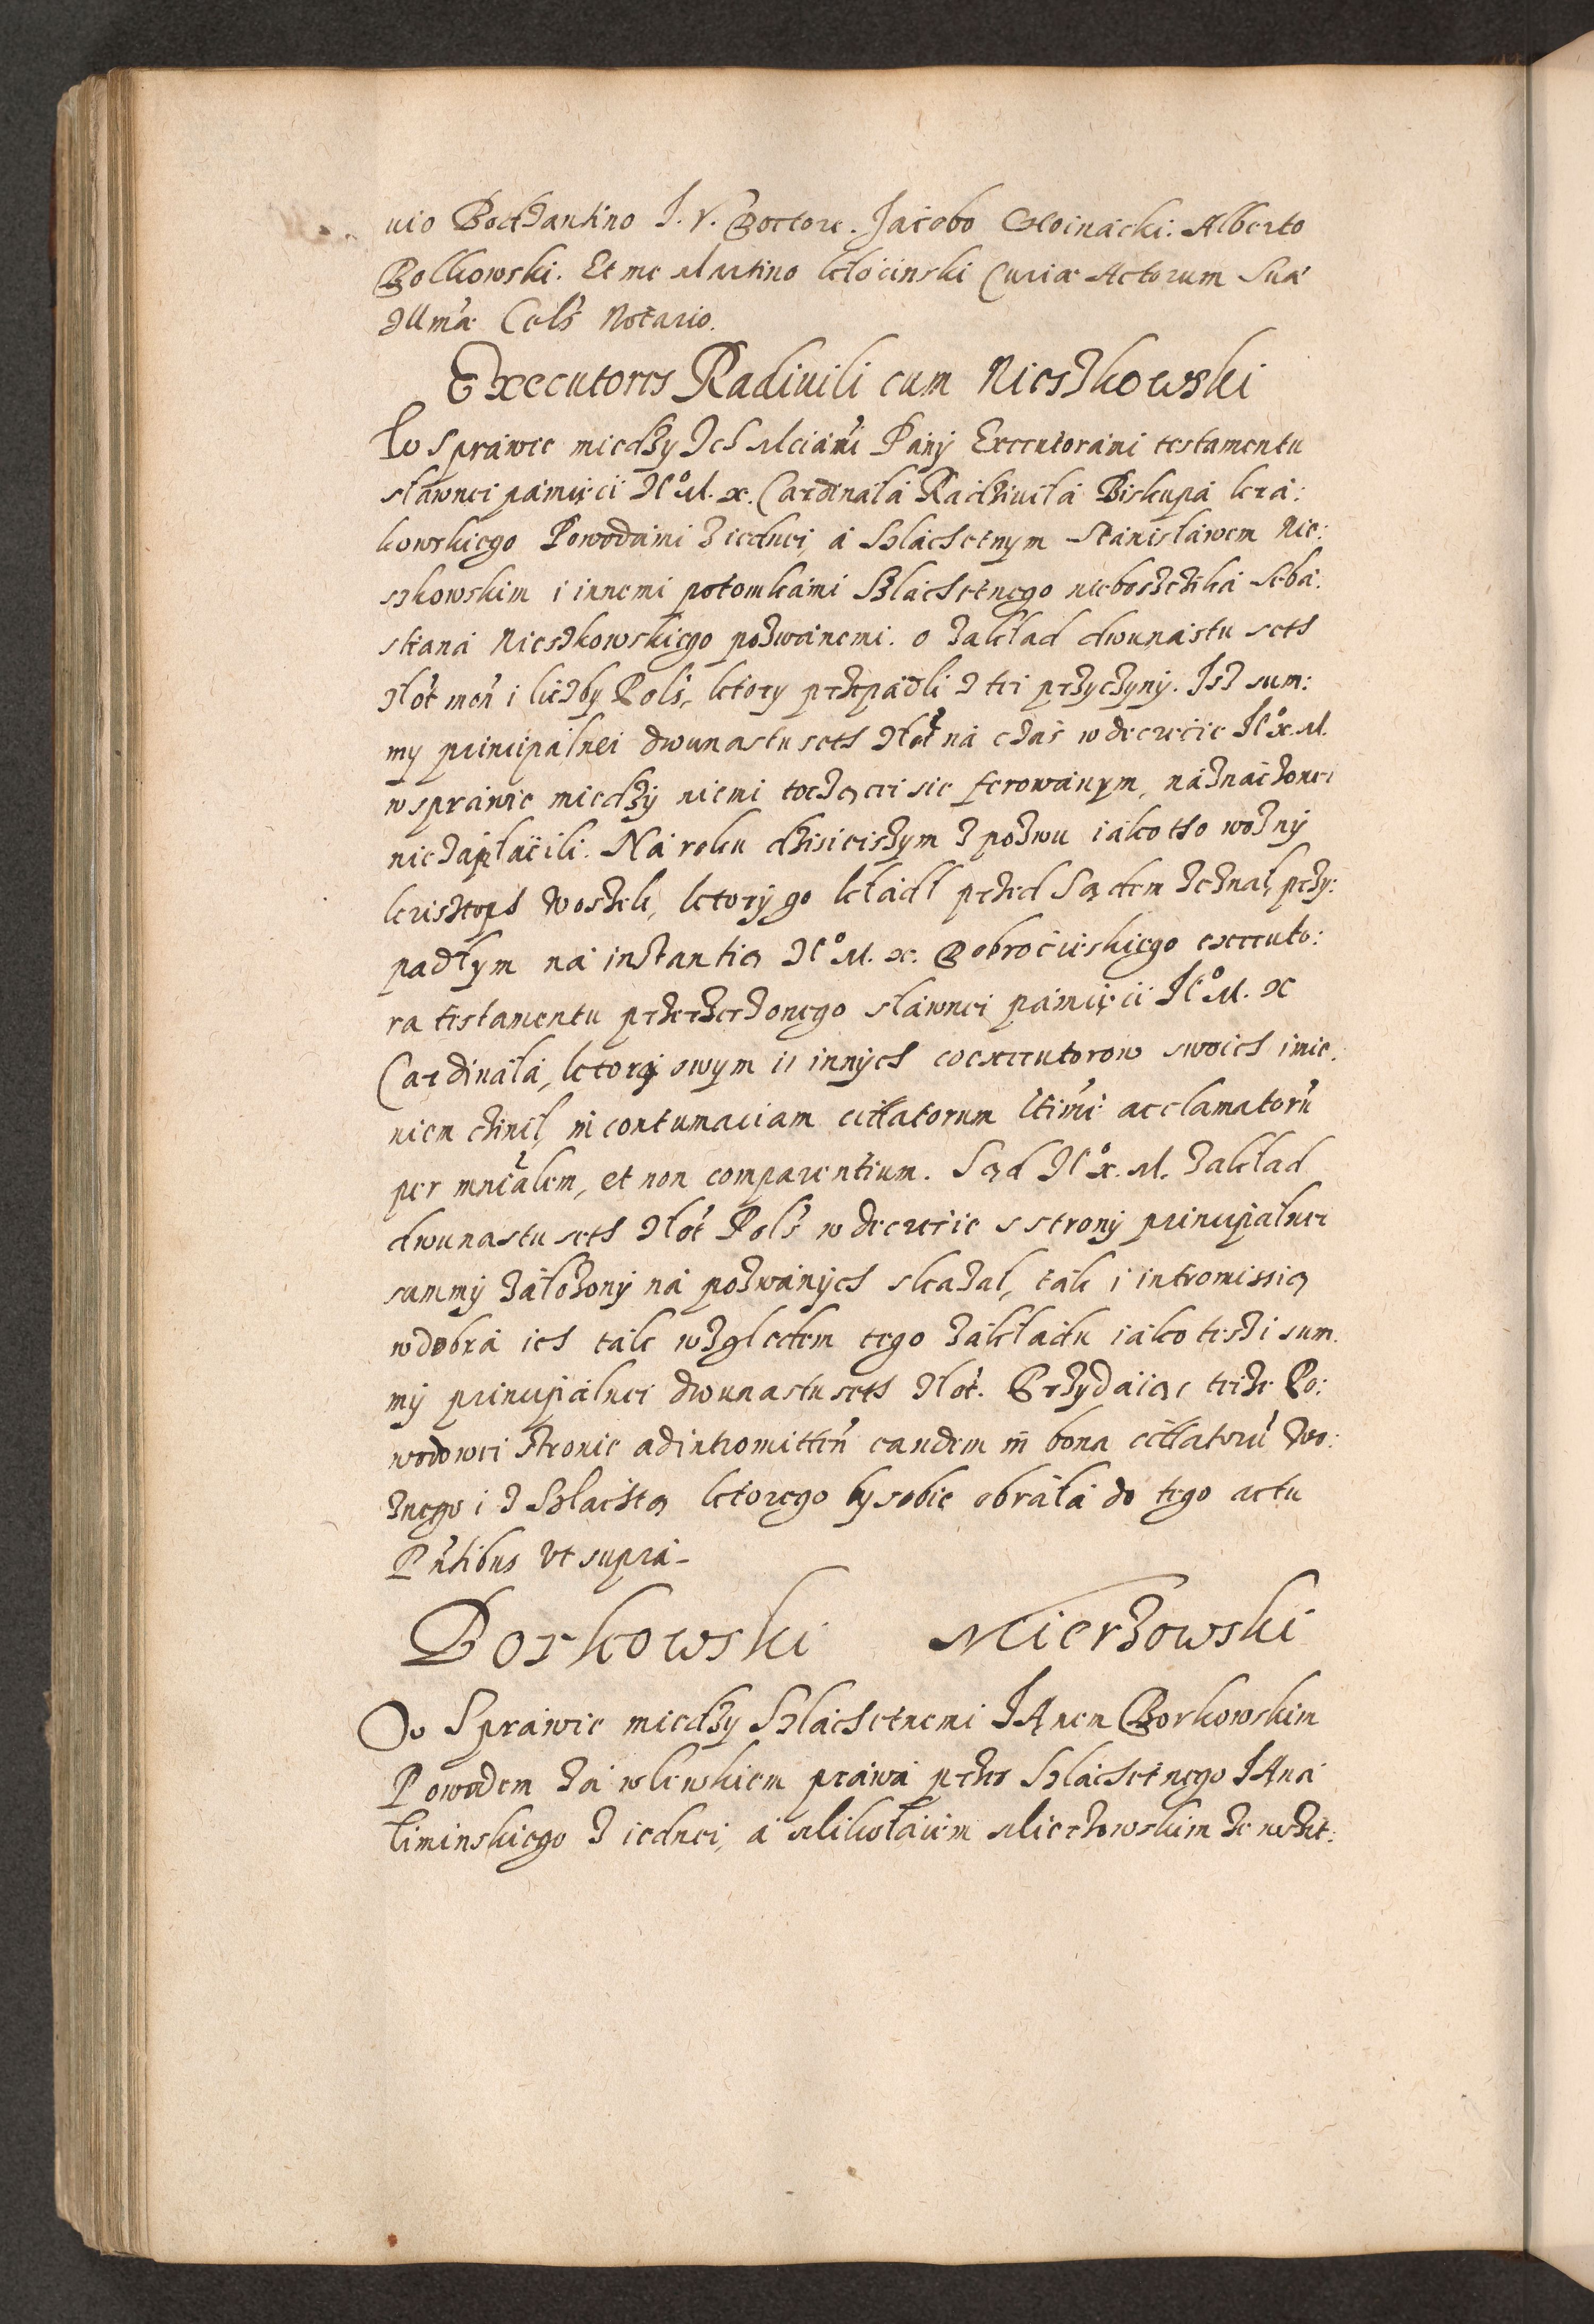 uio Bodzantino I. V. Doctore. Jacobo Gloinacki. Alberto
Bolkowski. Et me Martino Kłócinski Curiæ Actorum Suæ
Illmæ Cels Notario.
Executores Radiuili cum Nieszkowski
W Spráwie miedzy Ich Mciámi Pány Executorámi testamentu
sławnei pámięci Je° M. x. Cárdinałá Rádziuiłá Biskupá krá:
kowskiego Powodámi z iednei, á Szláchetnym Stánisláwem Nie:
szkowskim i innemi potomkámi Szláchetnego nieboszczyká Sebá:
stianá Nieszkowskiego pozwánemi. o zakład dwunastu seth
złot moń i liczby Pols, ktory przepádli z tei przyczyny. Isz sum:
my principálnei dwunastu seth złot ná czás w decrecie Je° x. M.
w spráwie miedzy niemi toczącei sie ferowánym, náznáczonei
nie zápłácili. Ná roku dzisieiszym z pozwu iáko tho woźny
Krisztoph Woszek, ktory go kłádł przed Sądem zeznał, przy:
padłym ná instantią Je° M. x. Dobrocieskiego executo:
ra testamentu przerzeczonego sławnei pámięci Je° M. x
Cardinałá, ktorą swym i innych coexecutorow swoich imie:
niem czinił, in contumaciam cittatorum ltimè acclamatorũ
per mnialem, et non comparentium. Sąd Je° x. M. zakład
dwunastu seth złot Pols w decrecie s strony principálnei
summy záłozony ná pozwánych skazał, ták i intromissią
w dobrá ich ták względem tego zakłádu iáko tesz i sum:
my principálnei dwunastu seth złot. Przydáiąc teize Po:
wodowei stronie ad intromitten eandem in bona cittatorũ Wo:
źnego i z Szláchtą ktorego by sobie obráłá do tego actu
Pntibus vt suprá-
Borkowski Mierzowski
W Spráwie miedzy Szláchetnemi JAnem Borkowskim
Powodem zá wlewkiem práwá przes Szláchetnego JAná
Liminskiego z iednei, á Mikołáiem Mierzowskim ze wszit: